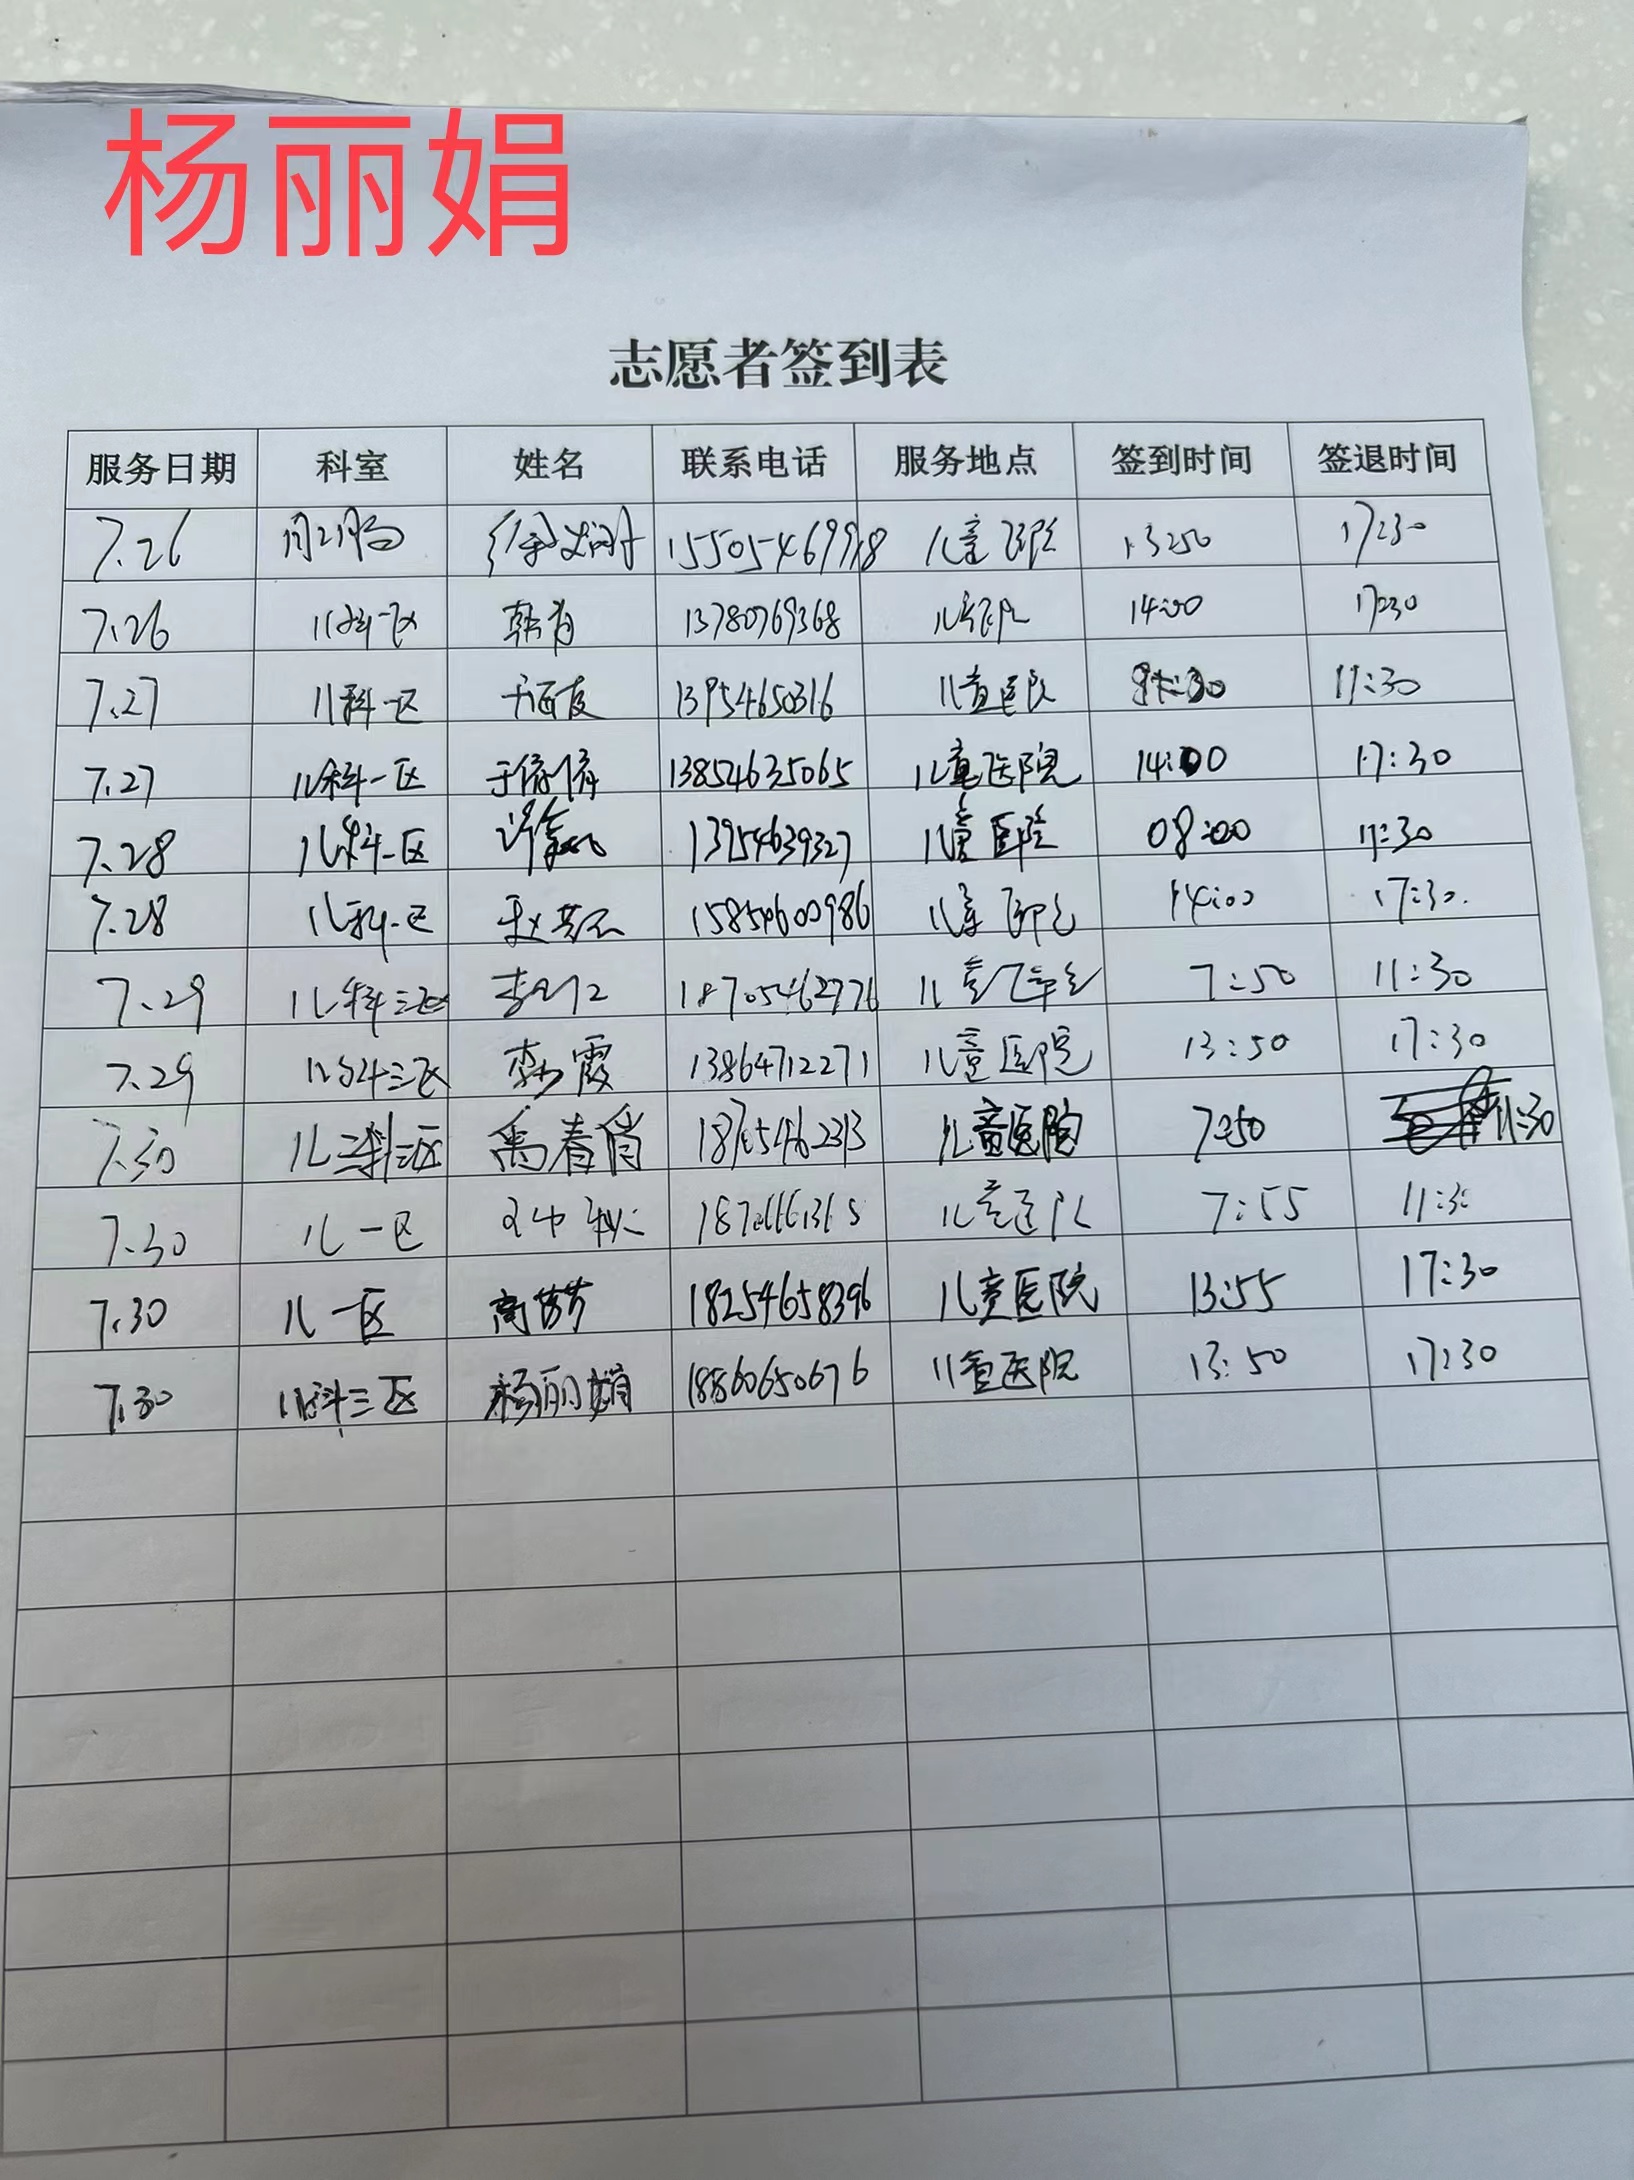 杨丽娟
志愿者签到表
服务日期 科室 姓名 联系电话 服务地点 签到时间 签退时间
7.26 15505469998 儿童医院 13:50 17:30
7.26 儿科一区 13780769368 儿童医院 14:00 17:30
7.27 儿科一区 13954650316 儿童医院 11:30
7.27 儿科一区 于倩倩 13854635065 儿童医院 14:00 17:30
7.28 儿科一区 13954639327 儿童医院 08:00 11:30
7.28 儿科一区 15854600986 儿童医院 14:00 17:30.
7.29 儿科三区 18705462776 儿童医院 7:50 11:30
7.29 儿科三区 李霞 13864712271 儿童医院 13:50 17:30
7.30 儿科三区 禹春肖 18705462313 儿童医院 7:50 11:30
7.30 儿一区 儿童医院 7:55 11:30
7.30 儿一区 高梦梦 18254658396 儿童医院 13:55 17:30
7.30 儿科三区 杨丽娟 18860650676 儿童医院 13:50 17:30